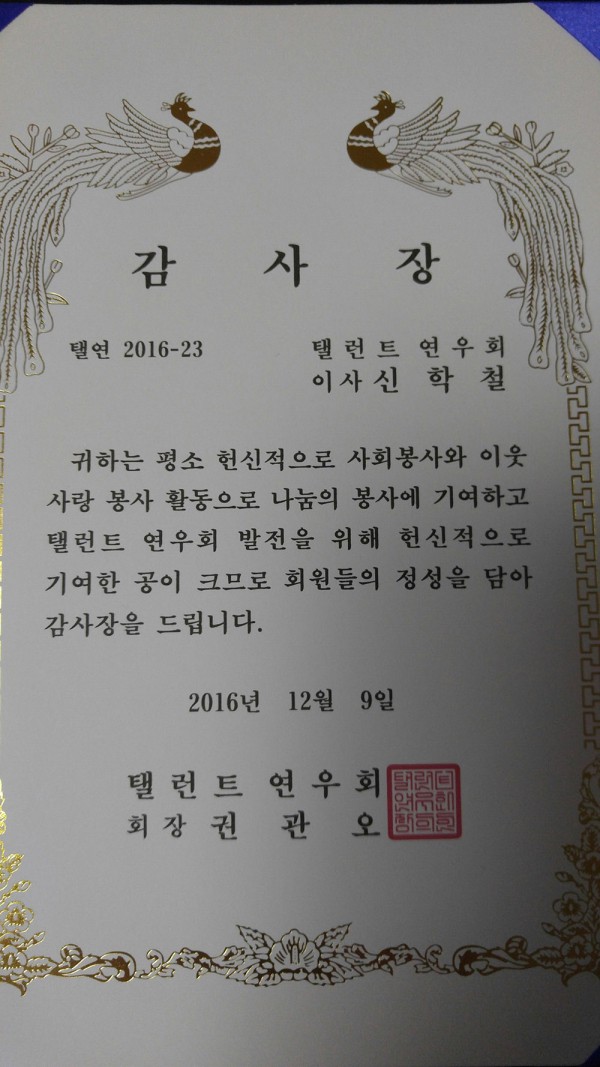 감 사 장
탤연 2016-23
탤 런 트 연 우 회
이사 신 학 철
귀하는 평소 헌신적으로 사회봉사와 이웃
사랑 봉사 활동으로 나눔의 봉사에 기여하고
탤런트 연우회 발전을 위해 헌신적으로
기여한 공이 크므로 회원들의 정성을 담아
감사장을 드립니다.
2016년 12월 9일
탤 런 트 연 우 회
회 장 권 관 오